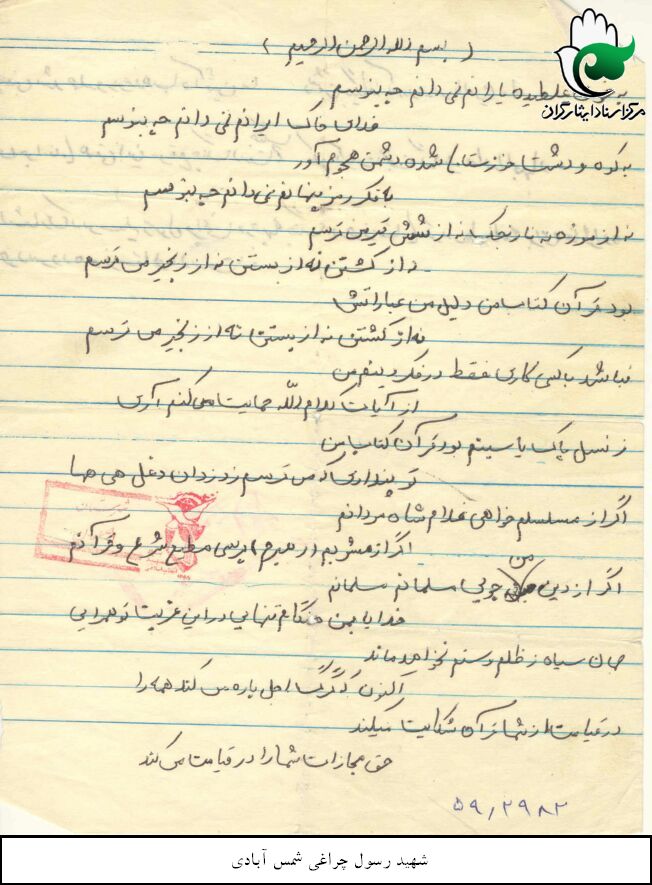 ( بسم الله الرحمن الرحیم )
مرکز اسناد ایثارگران
به خون غلطیده یارانم نمی دانم چه بنویسم
فدای خاک ایرانم نمی دانم چه بنویسم
به کوه و دشت خوزستان شده دشمن هجوم آور
نمی دانم چه بنویسم
نه از موزه نه نارنجک نه از شش تیر می ترسم
نه از کشتن نه از بستن نه از زنجیر می ترسم
بود قرآن کتاب من دلیل من عباراتش
نه از کشتن نه از بستن نه از زنجیر می ترسم
نباشد با کسی کاری فقط در فکر دینم من
از آیات کلام الله حمایت می کنم آری
ز نسل پاک یاسینم بود قرآن کتاب من
تو پنداری که من ترسم ز دزدان دغل
اگر از مسلسلم خواهی غلام شاه مردانم
اگر از مشربم پرسی مطیع شرع و قرآنم
اگر از دین من جویی مسلمانم مسلمانم
خدایا من هنگام تنهایی در این غربت تو همرایی
جهان سیاه ز ظلم و ستم نخواهد ماند
اکنون که گرگ اجل پاره می کند همه را
در قیامت از شما قرآن شکایت میکند
حق مجازات شما را در قیامت می کند
۵۹/۲۹۸۲
شهید رسول چراغی شمس آبادی